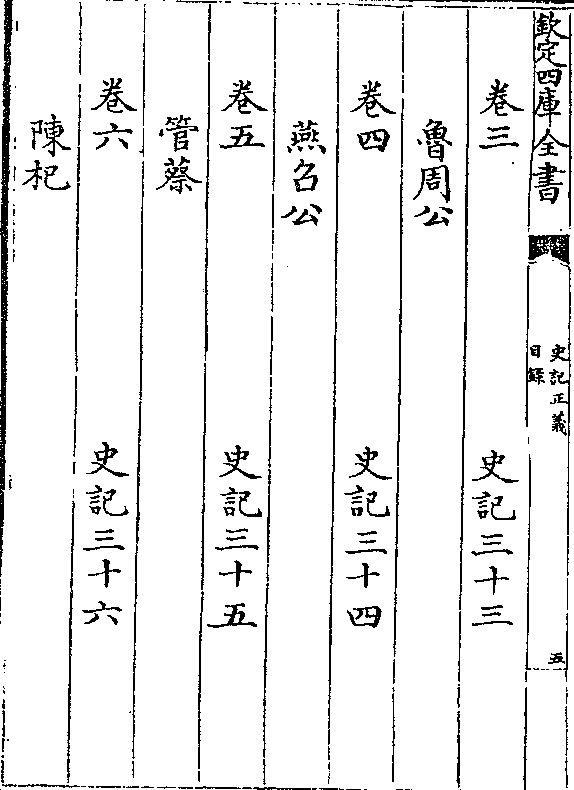 欽定四庫全書
史記正義
目錄
五
卷三 史記三十三
魯周公
卷四 史記三十四
燕召公
卷五 史記三十五
管蔡
卷六 史記三十六
陳杞